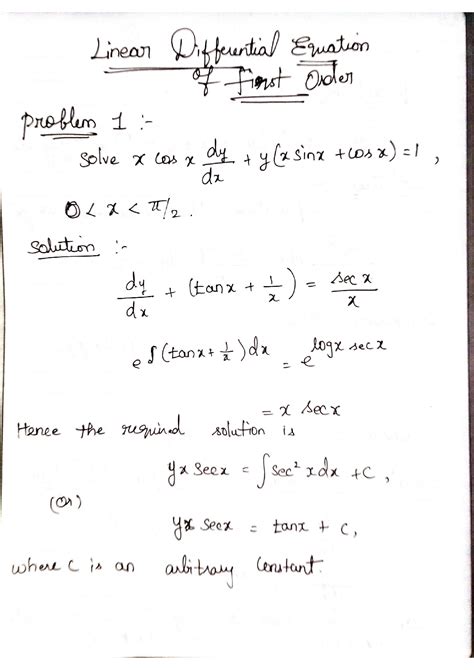 Linear Differential Equation
of First Order
Problem 1 :-
Solve x cos x dy/dx + y(x sinx + cos x) = 1,
0 < x < π/2.
Solution :-
dy/dx + (tanx + 1/x) = sec x/x
e∫(tanx + 1/x)dx = e^logx secx
= x secx
Hence the required solution is
yx secx = ∫sec² xdx + c,
(or)
yx secx = tanx + c,
where c is an arbitrary constant.